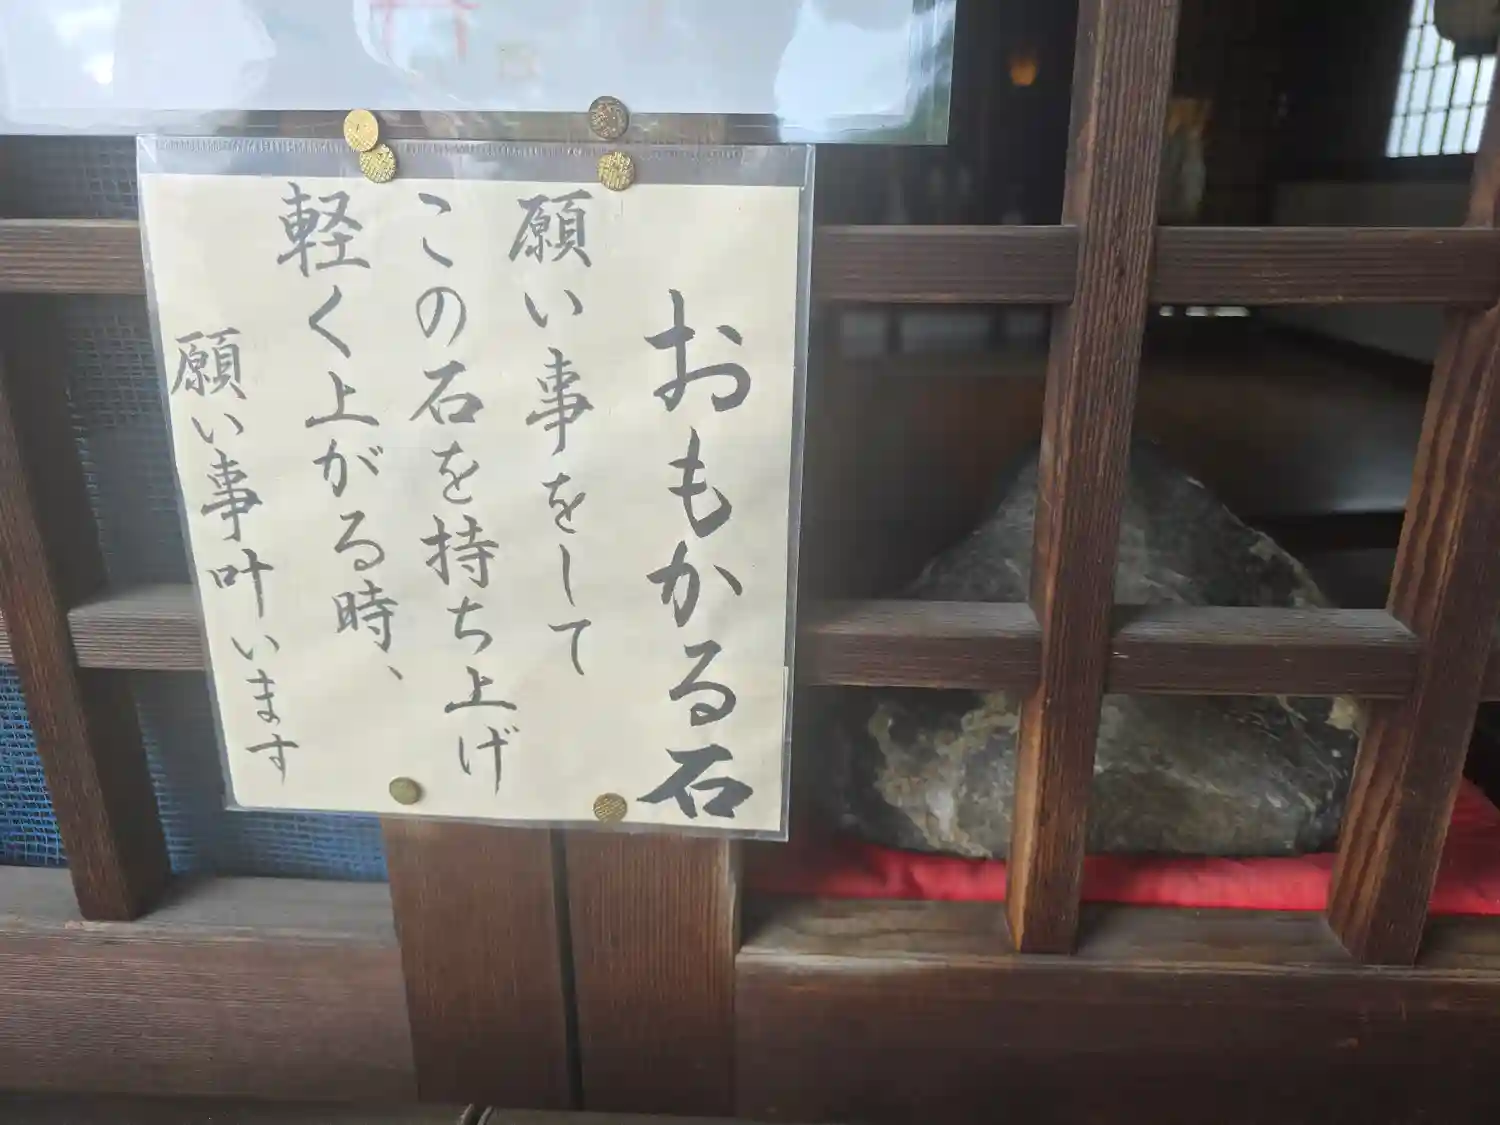 おもかる石
願い事をして
この石を持ち上げ
軽く上がる時、
願い事叶います